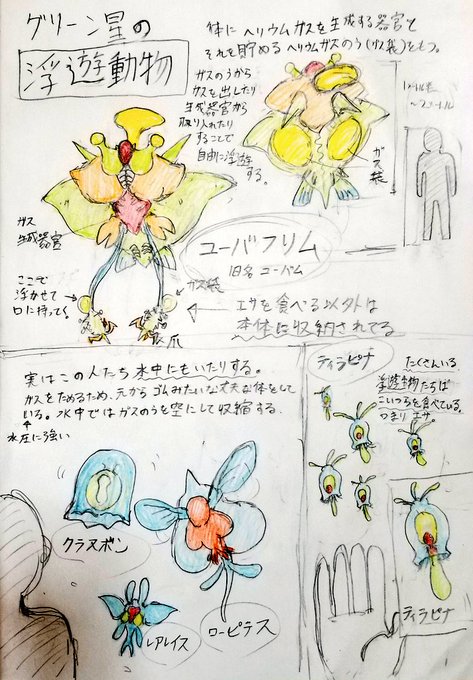 グリーン星の
浮遊動物
体にヘリウムガスを生成する器官と
それを貯めるヘリウムガスのう(ガス袋)をもつ。
ガスのうから
ガスを出したり
生成器官から
取り入れたり
することで
自由に浮遊
する。
ガス袋
1メートル半
〜2メートル
ガス
生成器官
ユーバフリム
旧名 ユーバム
ここで
浮かせて
口に持ってく
ガス袋
爪
エサを食べる以外は
本体に収納されてる
実はこの人たち水中にもいたりする。
ガスをためるため、元からゴムみたいな丈夫な体をして
いる。水中ではガスのうを空にして収縮する
水圧に強い
クラヌボン
レアレイス
ローピテス
ティラピナ
たくさんいる
浮遊生物たちは
こいつらを食べている。
つまり エサ。
ティラピナ